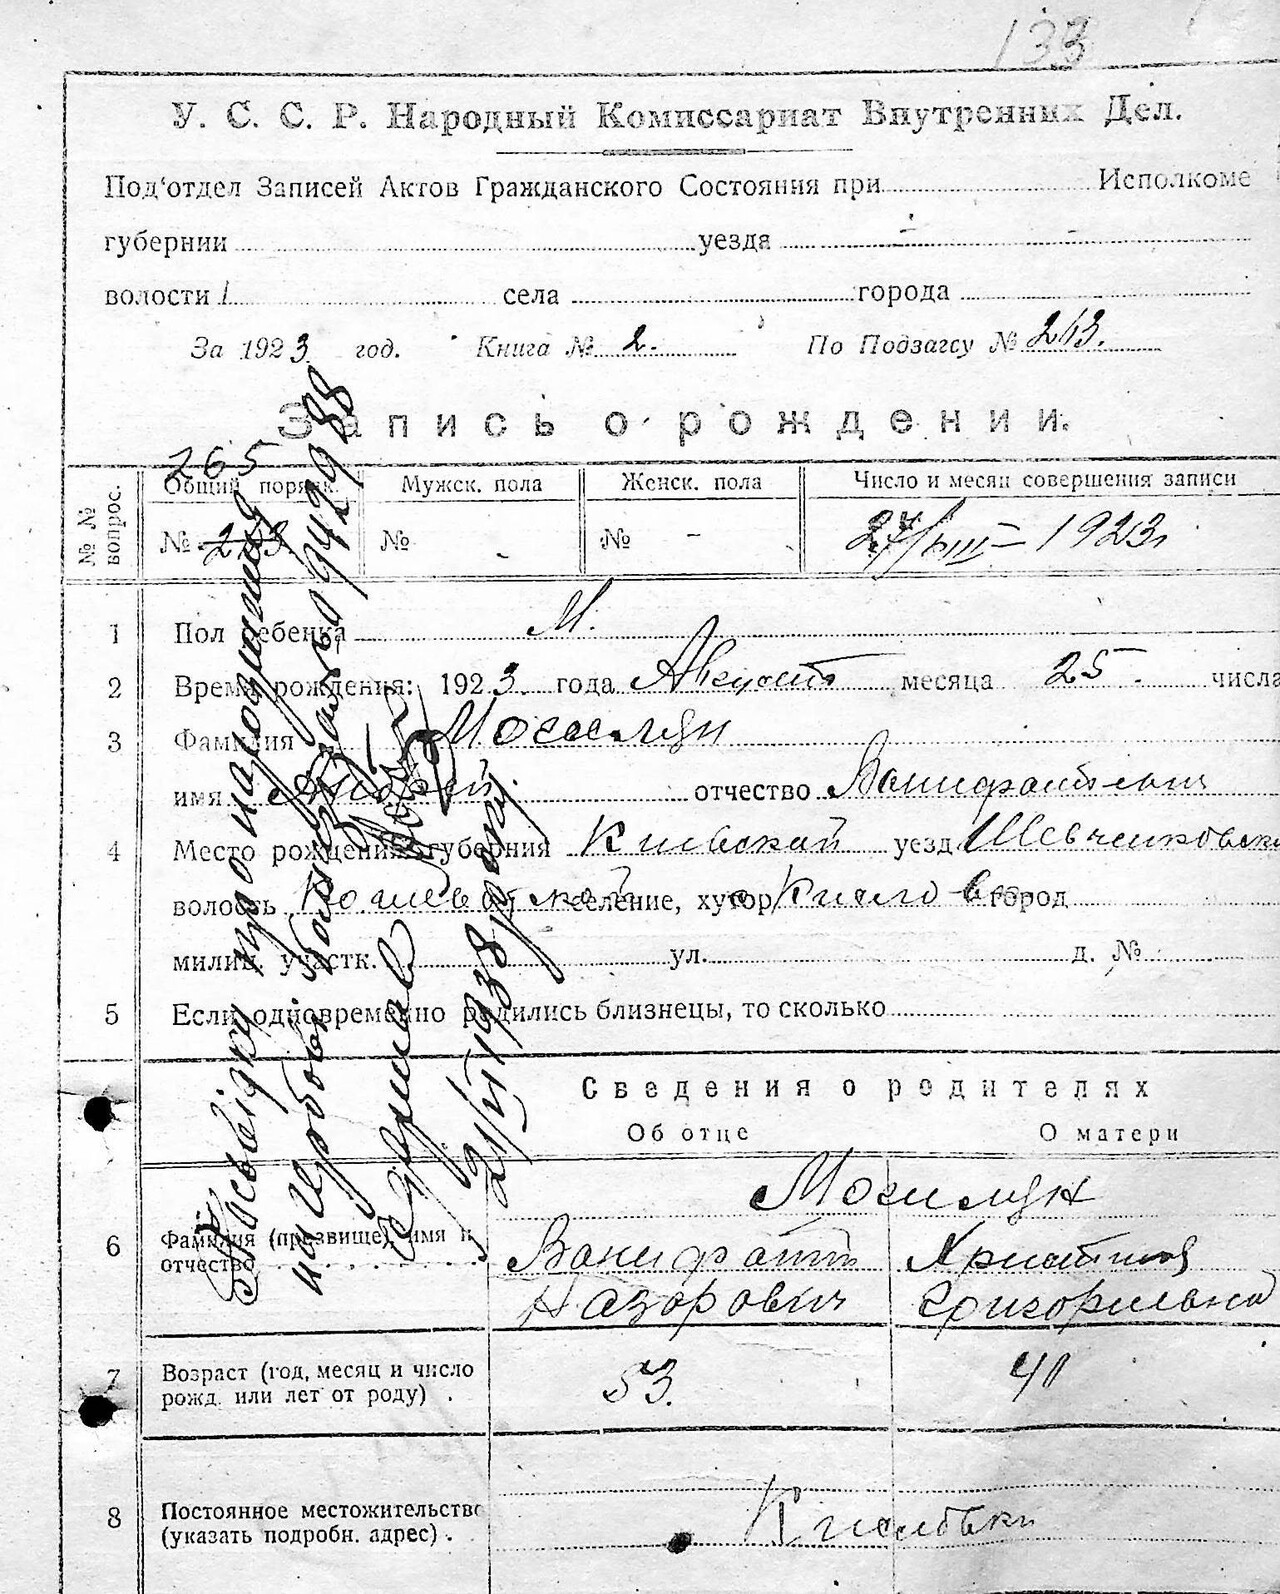 133
У. С. С. Р. Народный Комиссариат Внутренних Дел.
Под'отдел Записей Актов Гражданского Состояния при Исполкоме
губернии уезда
волости села города
За 1923 год. Книга № 2. По Подзагсу № 213.
Запись о рождении.
265
№ № вопрос. Общий порядк. Мужск. пола Женск. пола Число и месяц совершения записи
№ 213. № - № - 27/VIII - 1923
1 Пол ребенка М.
2 Время рождения: 1923 года Август месяца 25 числа
3 Фамилия
имя Андрей отчество
4 Место рождения: губерния Киевской уезд Шевченковск
волость селение, хутор город
милиц. участк. ул. д. №
5 Если одновременно родились близнецы, то сколько
Сведения о родителях
Об отце О матери
6 Фамилия (прозвище), имя и
отчество
Назарович Григорьевна
7 Возраст (год, месяц и число
рожд. или лет от роду) . 53. 41
8 Постоянное местожительство
(указать подробн. адрес) .
Посвідку про народження
на
одержав
21/VI 1938 року